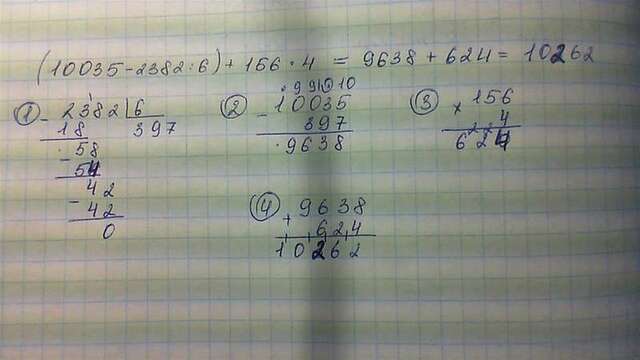 (10035-2382:6)+156·4 = 9638+624= 10262
① - 2382 6
18 397
- 58
54
- 42
42
0
② · 9 9 10 10
- 10035
397
· 9638
③ × 156
4
624
④ + 9638
624
10262